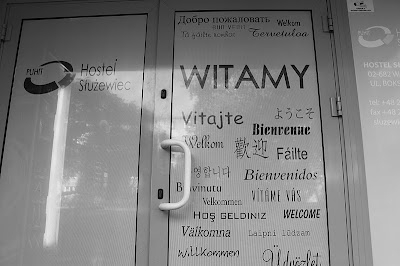 PUHIT
Hostel
Służewiec
Добро пожаловать
Welkom
Tervetuloa
WITAMY
Vítajte
ようこそ
Welkom
Bienvenue
歡迎
Fáilte
영합니다
Bienvenidos
Benvinutu
VÍTÁME VÁS
Velkommen
HOŞ GELDINIZ
WELCOME
Väikomna
Laipni lūdzam
Willkommen
Üdvözlet
HOSTEL
02-682 W
UL. ROKS
tel: +48 2
fax +48 2